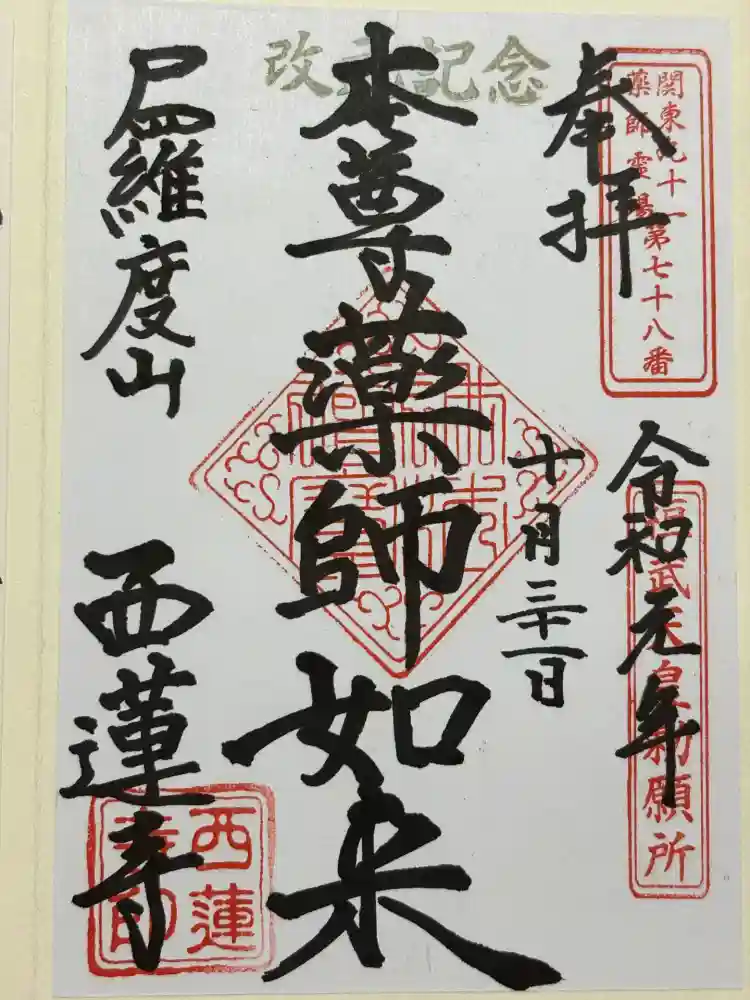 奉拝
関東九十一
薬師霊場第七十八番
令和元年
桓武天皇勅願所
十月三十一日
改元記念
本尊薬師如来
尸羅度山
西蓮寺
西蓮
寺印